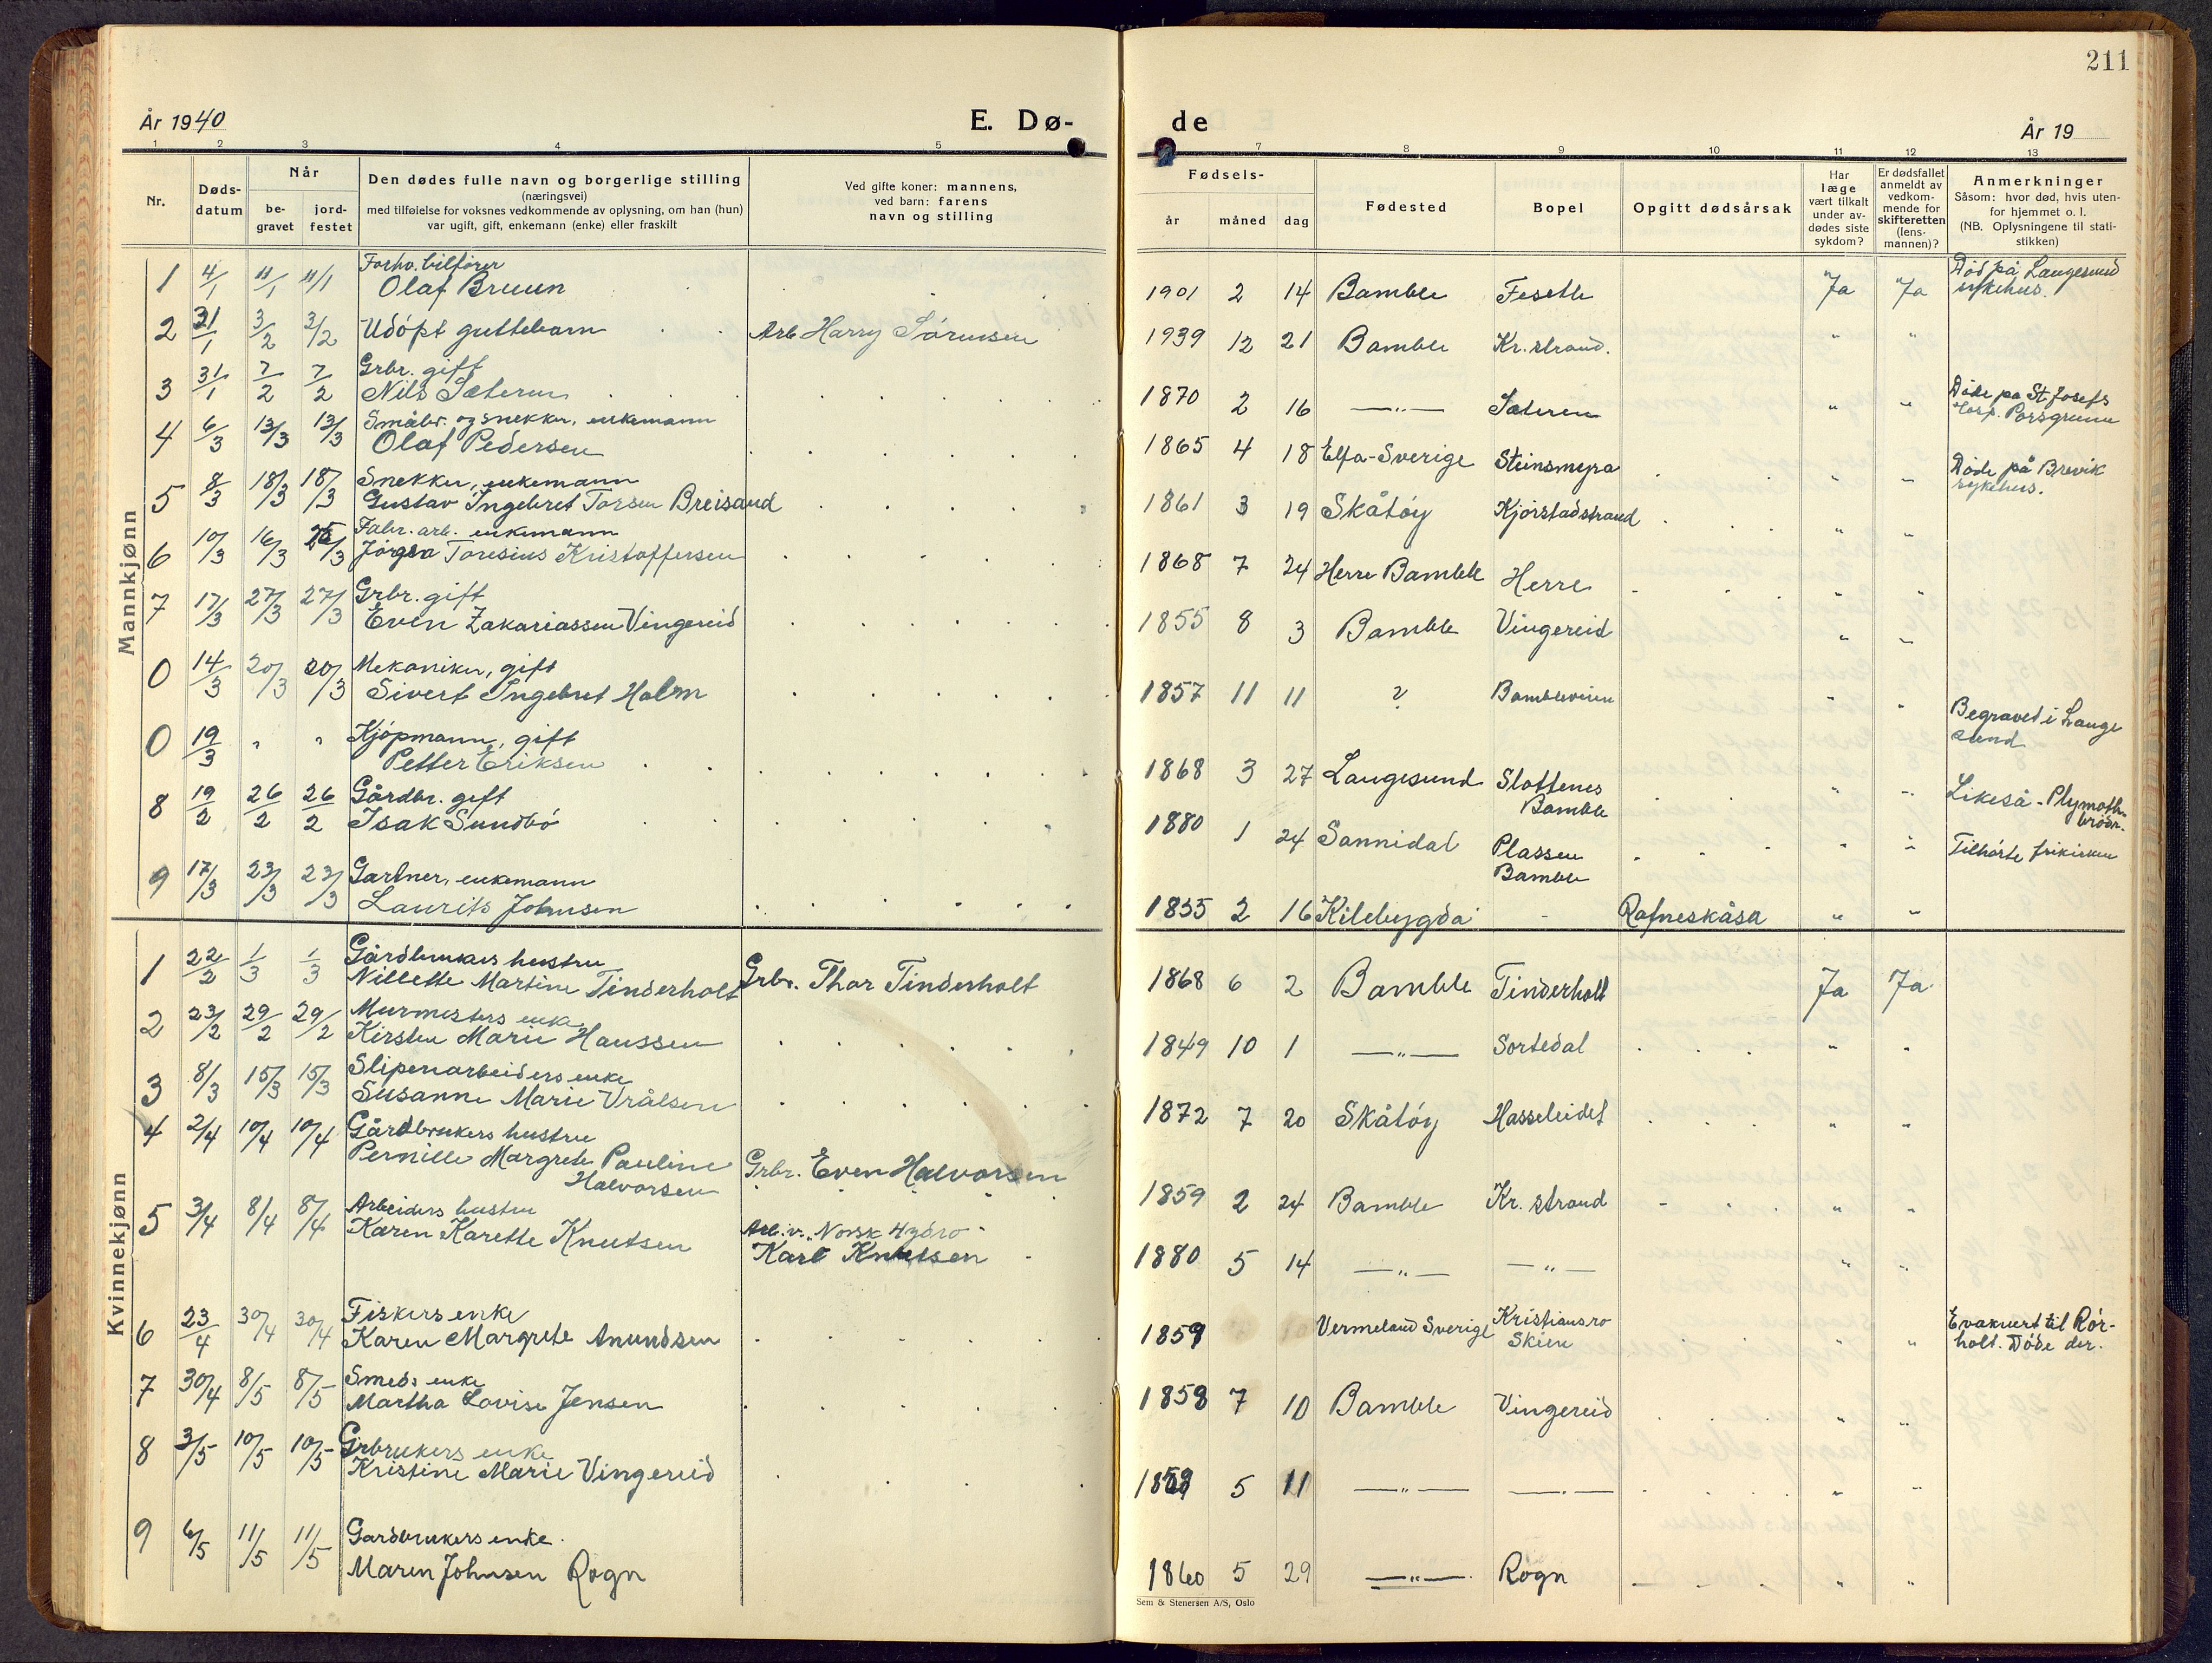 211
År 1940
E. Dø-
de
År 19
1 2 3 4 5 7 8 9 10 11 12 13
Nr.
Døds-
datum
Når
be-
gravet
jord-
festet
Den dødes fulle navn og borgerlige stilling
(næringsvei)
med tilføielse for voksnes vedkommende av oplysning, om han (hun)
var ugift, gift, enkemann (enke) eller fraskilt
Ved gifte koner: mannens,
ved barn: farens
navn og stilling
Fødsels-
år måned dag
Fødested
Bopel
Opgitt dødsårsak
Har
læge
vært tilkalt
under av-
dødes siste
sykdom?
Er dødsfallet
anmeldt av
vedkom-
mende for
skifteretten
(lens-
mannen)?
Anmerkninger
Såsom: hvor død, hvis uten-
for hjemmet o. l.
(NB. Oplysningene til stati-
stikken)
Mannkjønn
Forhv. bilfører
1 4/1 11/1 11/1 Olaf Bruun 1901 2 14 Bamble Feset Ja Ja Død på Langesund
sykehus.
2 31/1 3/2 3/2 Udöpt guttebarn Arb Harry Sörensen 1939 12 21 Bamble Kr. strand. " "
Grbr. gift
3 31/1 7/2 7/2 Nils Sæteren 1870 2 16 —"— Sæteren " " Döde på St. Josefs
Hosp. Porsgrunn
Småbr. og snekker, enkemann
4 6/3 13/3 13/3 Olaf Pedersen 1865 4 18 -Sverige Steinsmyra " " Döde på Brevik
sykehus.
Snekker, enkemann
5 8/3 18/3 18/3 Gustav Ingebret Torsen Breisand 1861 3 19 Skåtöy Kjörstadstrand " "
Fabr. arb. enkemann
6 10/3 16/3 25/3 Jörgen Toresius Kristoffersen 1868 7 24 Herre Bamble Herre " "
Grbr. gift
7 17/3 27/3 27/3 Even Zakariassen Vingereid 1855 8 3 Bamble Vingereid " "
Mekaniker, gift
0 14/3 20/3 20/3 Sivert Ingebret Holm 1857 11 11 ? Bambleveien " " Begraved i Lange
sund
Kjöpmann, gift
0 19/3 " " Petter Eriksen 1868 3 27 Langesund Slottenes
Bamble " " Likeså - Plymoth-
brödr.
Gårdbr. gift
8 19/2 26/2 26/2 Isak Sundbö 1880 1 24 Sannidal Plassen
Bamble " " Tilhörte frikirken
Gartner, enkemann
9 17/3 23/3 23/3 Laurits Johnsen 1855 2 16 Kilebygda - Rafneskåsa " "
Kvinnekjønn
Gårdbrukers hustru
1 22/2 1/3 1/3 Nillette Martine Tinderholt Grbr. Thor Tinderholt 1868 6 2 Bamble Tinderholt Ja Ja
Murmesters enke
2 23/2 29/2 29/2 Kirsten Marie Hanssen 1849 10 1 —"— Sortedal " "
Slipenarbeiders enke
3 8/3 15/3 15/3 Susanne Marie Vrålsen 1872 7 20 Skåtöy Hasseleidet " "
Gårdbrukers hustru
4 2/4 10/4 10/4 Pernille Margrete Pauline
Halvorsen Grbr. Even Halvorsen 1859 2 24 Bamble Kr. strand " "
Arbeiders hustru
5 3/4 8/4 8/4 Karen Karette Knutsen Arb. v. Norsk Hydro
Karl Knutsen 1880 5 14 —"— —"— " "
Fiskers enke
6 23/4 30/4 30/4 Karen Margrete Amundsen 1859 Vermeland Sverige Kristiansro
Skien " " Evakuert til Rör-
holt. Döde der.
Smeds enke
7 30/4 8/5 8/5 Martha Lovise Jensen 1858 7 10 Bamble Vingereid " "
Grbrukers enke
8 3/5 10/5 10/5 Kristine Marie Vingereid 5 11 —"— —"— " "
Gardbrukers enke.
9 6/5 11/5 11/5 Maren Johnsen Rogn 1860 5 29 —"— Rogn " "
Sem & Stenersen A/S, Oslo